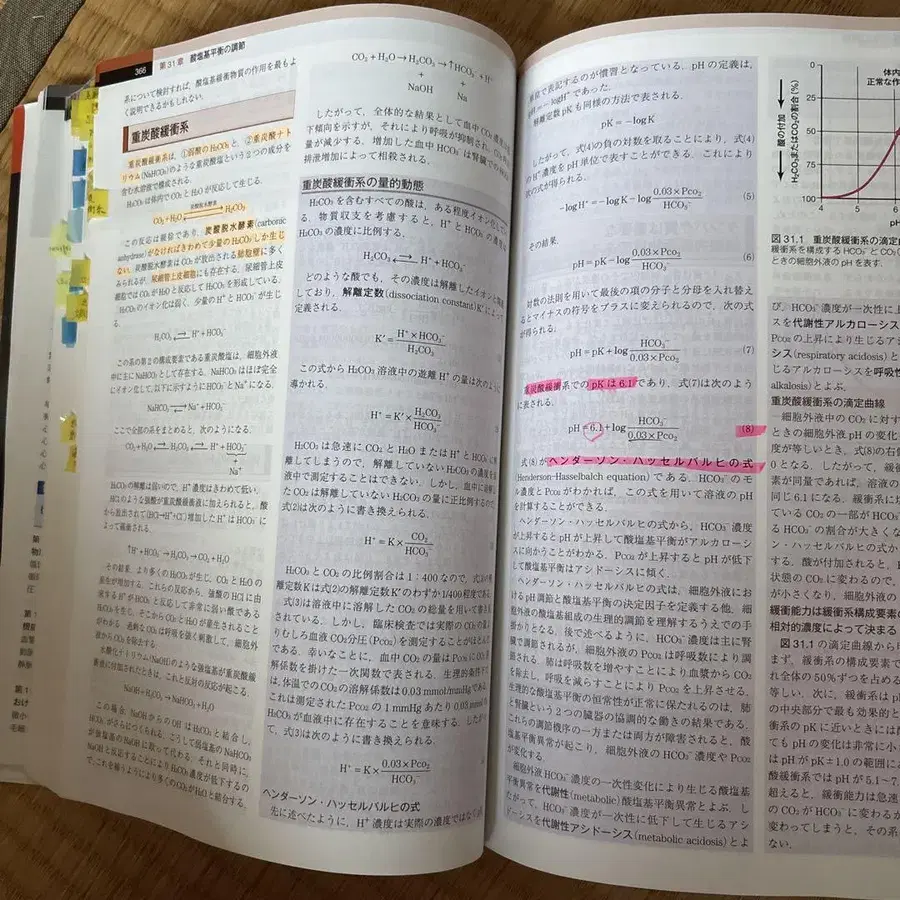 366 第 31 章 酸塩基平衡の調節
系について検討すれば，酸塩基緩衝物質の作用を最もよ
く説明できるかもしれない．
重炭酸緩衝系
重炭酸緩衝系は，①弱酸のH₂CO₃ と，②重炭酸ナト
リウム(NaHCO₃)のような重炭酸塩という 2 つの成分を
含む水溶液で構成される．
H₂CO₃ は体内で CO₂ と H₂O が反応して生じる．
炭酸脱水酵素
CO₂ + H₂O ⇄ H₂CO₃
この反応は緩徐であり，炭酸脱水酵素(carbonic
anhydrase)がなければきわめて少量の H₂CO₃ しか生じ
ない．炭酸脱水酵素は CO₂ が放出される肺胞壁に多く
みられるが，尿細管上皮細胞にも存在する．尿細管上皮
細胞では CO₂ が H₂O と反応して H₂CO₃ を形成している．
H₂CO₃ のイオン化は弱く，少量の H⁺ と HCO₃⁻ が生じ
る．
H₂CO₃ ⇄ H⁺ + HCO₃⁻
この系の第2の構成要素である重炭酸塩は，細胞外液
中に主に NaHCO₃ として存在する．NaHCO₃ はほぼ完全
にイオン化して，以下に示すように HCO₃⁻ と Na⁺ になる．
NaHCO₃ ⇄ Na⁺ + HCO₃⁻
ここで全部の系をまとめると，次のようになる．
CO₂ + H₂O ⇄ H₂CO₃ ⇄ H⁺ + HCO₃⁻
+
Na⁺
H₂CO₃ の解離は弱いので，H⁺ 濃度はきわめて低い．
HClのような強酸が重炭酸緩衝液に加えられると，酸
から放出されて(HCl→H⁺+Cl⁻)増加した H⁺ は HCO₃⁻ に
よって緩衝される．
↑H⁺ + HCO₃⁻ → H₂CO₃ → CO₂ + H₂O
その結果，より多くの H₂CO₃ が生じ，CO₂ と H₂O の
産生が増加する．これらの反応から，強酸の HCl に由
来する H⁺ が HCO₃⁻ と反応して非常に弱い酸である
H₂CO₃ を生じ，そこから CO₂ と H₂O が産生されることが
わかる．過剰な CO₂ は呼吸を強く刺激して，細胞外
液から CO₂ を除去する．
水酸化ナトリウム(NaOH)のような強塩基が重炭酸緩
衝液に付加されたときは，これと反対の反応が起こる．
NaOH + H₂CO₃ → NaHCO₃ + H₂O
この場合，NaOHからのOH⁻はH₂CO₃と結合し，
HCO₃⁻がさらにつくられる．こうして弱塩基のNaHCO₃
が強塩基のNaOHに取って代わる．それと同時に，
NaOHと反応することによりH₂CO₃濃度が低下するの
で，これを補うようにより多くのCO₂がH₂Oと結合する．
CO₂ + H₂O → H₂CO₃ → ↑HCO₃⁻ + H⁺
+ +
NaOH Na
したがって，全体的な結果として血中 CO₂ 濃度
下傾向を示すが，それにより呼吸が抑制され，CO₂
量が減少する．増加した血中 HCO₃⁻ は腎臓での
排泄増加によって相殺される．
重炭酸緩衝系の量的動態
H₂CO₃ を含むすべての酸は，ある程度イオン化してい
る．物質収支を考慮すると，H⁺ と HCO₃⁻ の濃度は
H₂CO₃ の濃度に比例する．
H₂CO₃ ⇄ H⁺ + HCO₃⁻
どのような酸でも，その濃度は解離したイオンと関連
しており，解離定数(dissociation constant)K′によって
定義される．
K′ = H⁺ × HCO₃⁻ / H₂CO₃
この式から H₂CO₃ 溶液中の遊離 H⁺ の量は次のように
導かれる．
H⁺ = K′ × H₂CO₃ / HCO₃⁻
H₂CO₃ は急速に CO₂ と H₂O または H⁺ と HCO₃⁻ に解
離してしまうので，解離していない H₂CO₃ の濃度を溶
液中で測定することはできない．しかし，血中に溶解し
た CO₂ は解離していない H₂CO₃ の量に正比例するので，
式(2)は次のように書き換えられる．
H⁺ = K × CO₂ / HCO₃⁻
H₂CO₃ と CO₂ の比例割合は 1：400 なので，式(3)の解
離定数 K は式(2)の解離定数 K′ のわずか 1/400 程度である．
式(3)は溶液中に溶解した CO₂ の総量を用いて書き表
されている．しかし，臨床検査では実際の CO₂ の量よ
りむしろ血液 CO₂ 分圧(Pco₂)を測定することがほとんど
である．幸いなことに，血中 CO₂ の量は Pco₂ に CO₂ 溶
解係数を掛けた一次関数で表される．生理的条件下で
は，体温での CO₂ の溶解係数は 0.03 mmol/mmHg であ
これは測定された Pco₂ の 1 mmHg あたり 0.03 mmol の
H₂CO₃ が血液中に存在することを意味する．したがっ
て，式(3)は次のように書き換えられる．
H⁺ = K × 0.03 × Pco₂ / HCO₃⁻
ヘンダーソン・ハッセルバルヒの式
先に述べたように，H⁺ 濃度は実際の濃度ではなく pH
単位で表記するのが慣習となっている．pH の定義は，
pH＝−logH⁺ であった．
解離定数 pK も同様の方法で表される．
pK = −logK
したがって，式(4)の負の対数を取ることにより，式(4)
の H⁺ 濃度を pH 単位で表すことができる．これにより
次の式が得られる．
−log H⁺ = −log K − log 0.03 × Pco₂ / HCO₃⁻ (5)
その結果，
pH = pK − log 0.03 × Pco₂ / HCO₃⁻ (6)
対数の法則を用いて最後の項の分子と分母を入れ替え
るとマイナスの符号をプラスに変えられるので，次の式
が得られる．
pH = pK + log HCO₃⁻ / 0.03 × Pco₂ (7)
重炭酸緩衝系での pK は 6.1 であり，式(7)は次のよう
に表される．
pH = 6.1 + log HCO₃⁻ / 0.03 × Pco₂ (8)
式(8)がヘンダーソン・ハッセルバルヒの式
(Henderson-Hasselbalch equation)である．HCO₃⁻ のモ
ル濃度と Pco₂ がわかれば，この式を用いて溶液の pH
を計算することができる．
ヘンダーソン・ハッセルバルヒの式から，HCO₃⁻ 濃度
が上昇すると pH が上昇して酸塩基平衡がアルカローシ
スに向かうことがわかる．Pco₂ が上昇すると pH が低下
して酸塩基平衡はアシドーシスに傾く．
ヘンダーソン・ハッセルバルヒの式は，細胞外液にお
ける pH 調節と酸塩基平衡の決定因子を定義する他，細
胞外液の酸塩基組成の生理的調節を理解するうえでの手
掛かりとなる．後で述べるように，HCO₃⁻ 濃度は主に腎
臓で調節されるが，細胞外液の Pco₂ は呼吸数により調
節される．肺は呼吸数を増やすことにより血漿から CO₂
を除去し，呼吸を減らすことにより Pco₂ を上昇させる．
生理的な酸塩基平衡の恒常性が正常に保たれるのは，肺
と腎臓という 2 つの臓器の協調的な働きの結果である．
これらの調節機序の一方または両方が障害されると，酸
塩基平衡異常が起こり，細胞外液の HCO₃⁻ 濃度や Pco₂
が変化する．
細胞外液 HCO₃⁻ 濃度の一次性変化により生じる酸塩基
平衡異常を代謝性(metabolic)酸塩基平衡異常とよぶ．し
たがって，HCO₃⁻ 濃度が一次性に低下して生じるアシ
ドーシスを代謝性アシドーシス(metabolic acidosis)とよ
酸の付加
H₂CO₃またはCO₂の割合(%)
0
25
50
75
100
4 5 6
pH
体内
正常な作
図 31.1 重炭酸緩衝系の滴定曲
緩衝系を構成する HCO₃⁻ と CO₂(
ときの細胞外液の pH を表す．
び，HCO₃⁻ 濃度が一次性に上
スを代謝性アルカローシス
Pco₂ の上昇により生じるアシ
シス(respiratory acidosis)と
じるアルカローシスを呼吸性
alkalosis)とよぶ．
重炭酸緩衝系の滴定曲線
細胞外液中の CO₂ に対す
ときの細胞外液 pH の変化
度が等しいとき，式(8)の右
0 となる．したがって，緩衝
素が同量であれば，溶液の
同じ 6.1 になる．緩衝系に
ている CO₂ の一部が HCO₃⁻
る HCO₃⁻ の割合が大きくな
ン・ハッセルバルヒの式から
する．酸が付加されると，H
状態の CO₂ に変わるので，
が小さくなり，細胞外液の
緩衝能力は緩衝系構成要素の
相対的濃度によって決まる
図 31.1 の滴定曲線から
まず，緩衝系の構成要素で
れ全体の 50%ずつを占める
等しい．次に，緩衝系は pH
の中央部分で最も効果的と
衝系の pK に近いときには
ても pH の変化は非常に小
は pH が pK±1.0 の範囲に
酸緩衝系では pH が 5.1〜7.
超えると，緩衝能力は急速
の CO₂ が HCO₃⁻ に変わる
変わってしまうと，その系
ない．